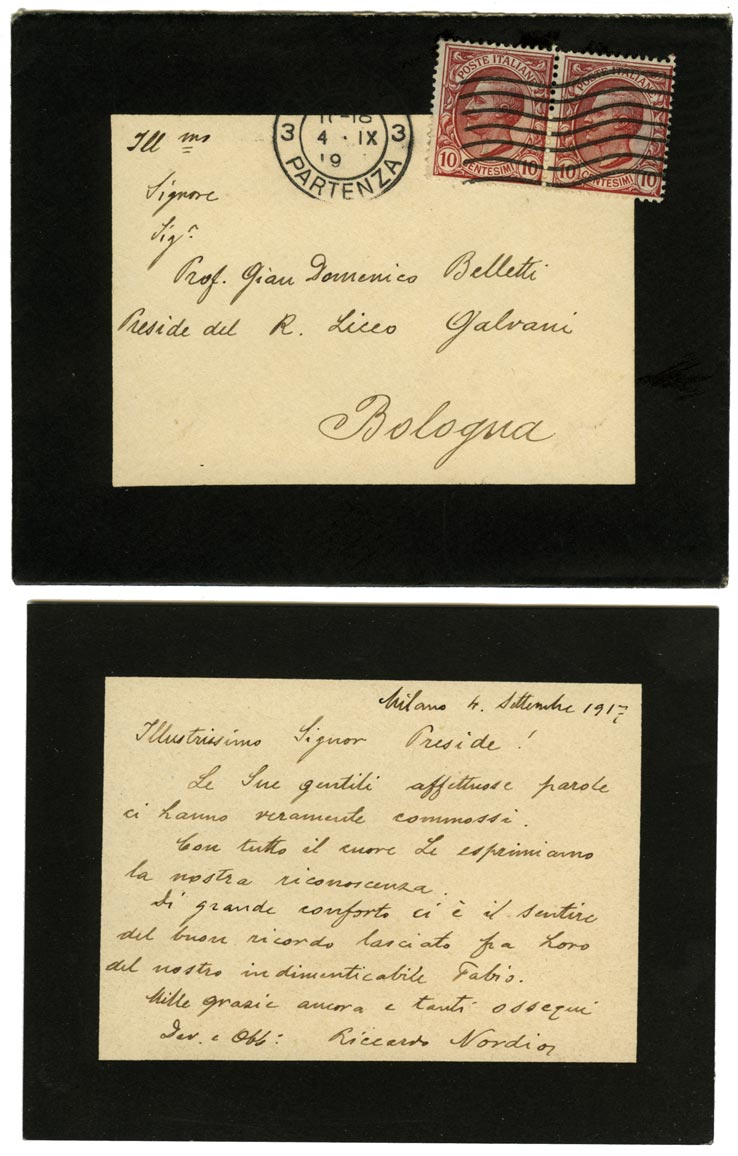 POSTE ITALIANE
10 CENTESIMI 10
POSTE ITALIANE
10 CENTESIMI 10
3 4 · IX 3
19
PARTENZA
Ill mo
Signore
Sigr
Prof. Gian Domenico Belletti
Preside del R. Liceo Galvani
Bologna
Milano 4. Settembre 1917
Illustrissimo Signor Preside!
Le Sue gentili affettuose parole
ci hanno veramente commossi.
Con tutto il cuore Le esprimiamo
la nostra riconoscenza.
Di grande conforto ci è il sentire
del buon ricordo lasciato fra Loro
del nostro indimenticabile Fabio.
Mille grazie ancora e tanti ossequi
Dev. e Obb: Riccardo Nordio